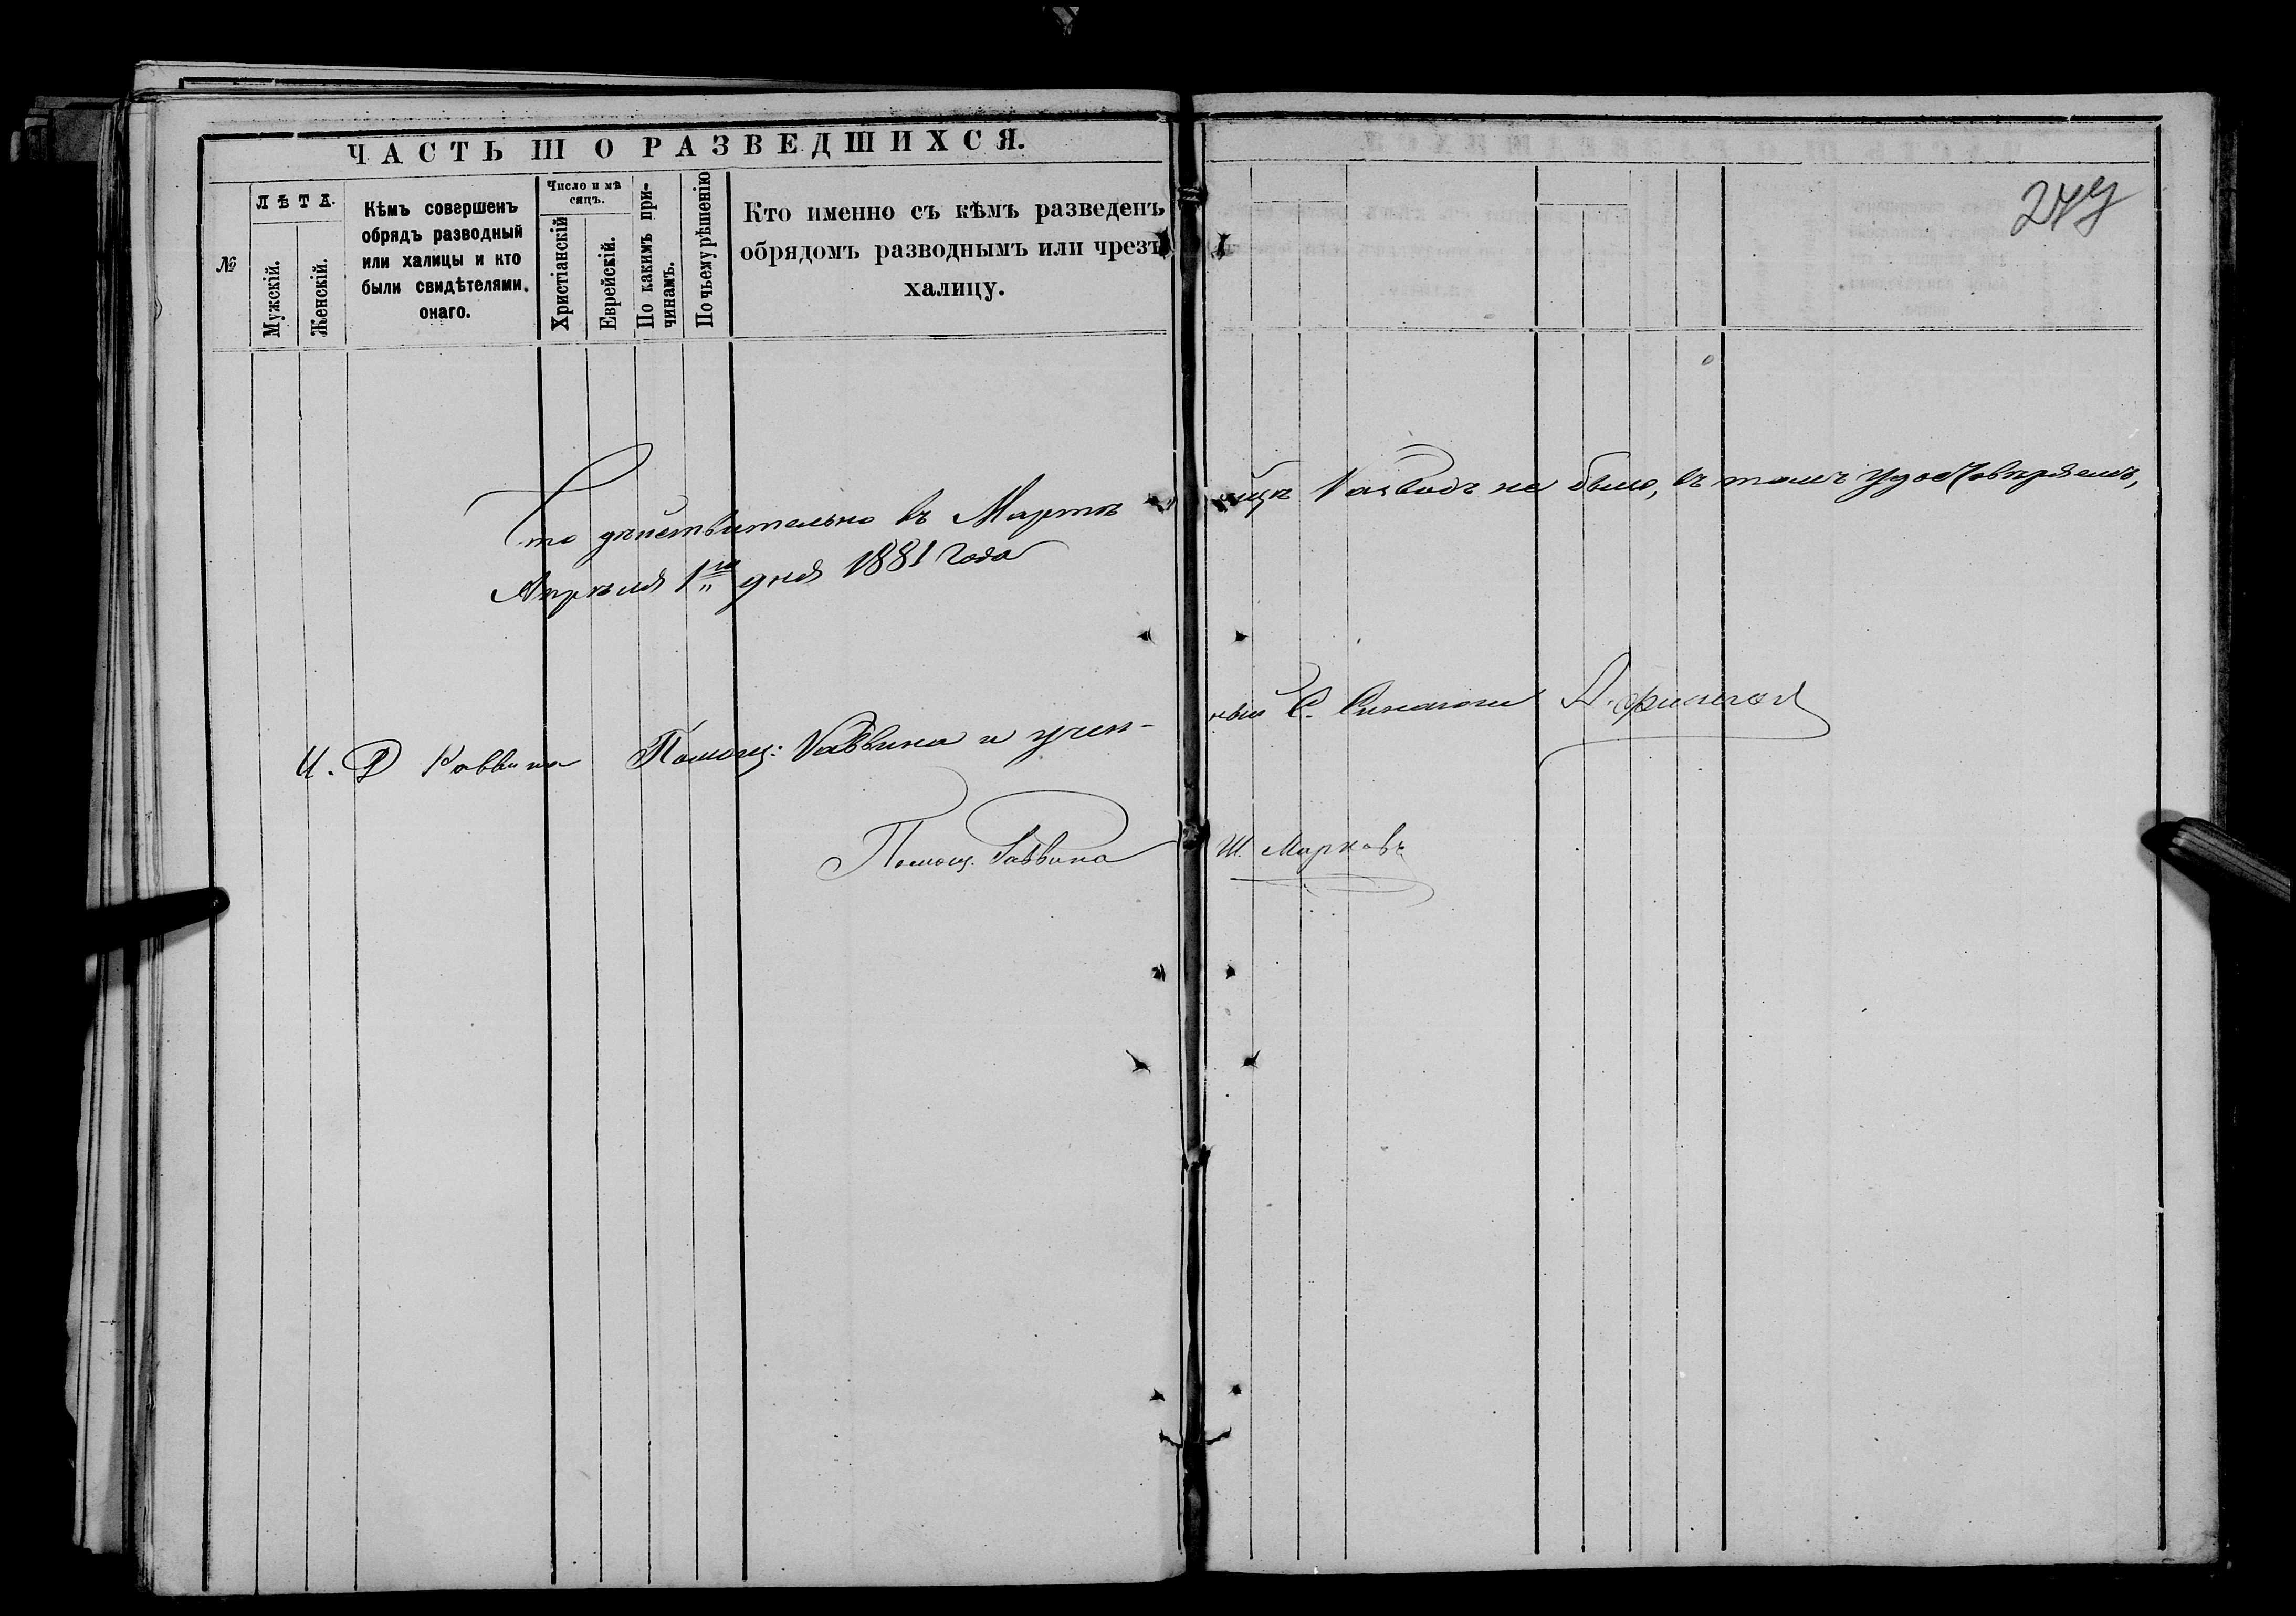 ЧАСТЬ III О РАЗВЕДШИХСЯ.
№
ЛѢТА.
Мужскій.
Женскій.
Кѣмъ совершенъ
обрядъ разводный
или халицы и кто
были свидѣтелями
онаго.
Число и мѣ
сяцъ.
Христіанскій
Еврейскій.
По какимъ при-
чинамъ.
По чьему рѣшенію
Кто именно съ кѣмъ разведенъ
обрядомъ разводнымъ или чрезъ
халицу.
279
Что дѣйствительно въ Мартѣ мѣсяцѣ Разводъ не было, въ томъ удостовѣряемъ,
Апрѣля 1го дня 1881 года
И. Д. Раввина Помощ: Раввина и учен-ный С. Синагоги
Помощ. Раввина Ш. Марковъ